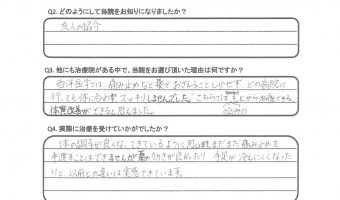 Q2. どのようにして当院をお知りになりましたか？
友人の紹介
Q3. 他にも治療院がある中で、当院をお選び頂いた理由は何ですか？
西洋医学では痛み止めなど薬でおさえることしかせず、どの病院に
行っても体に合わずスッキリしませんでした。こちらでは もとから治療できる、
体質改善ができると思いました。
Q4. 実際に治療を受けていかがでしたか？
体の調子が良くなってきているように思います。まだまだ痛み止めを
手放すことはできませんが薬の効きが良かったり 手足が冷えにくくなった
りと、以前との違いは実感できています。